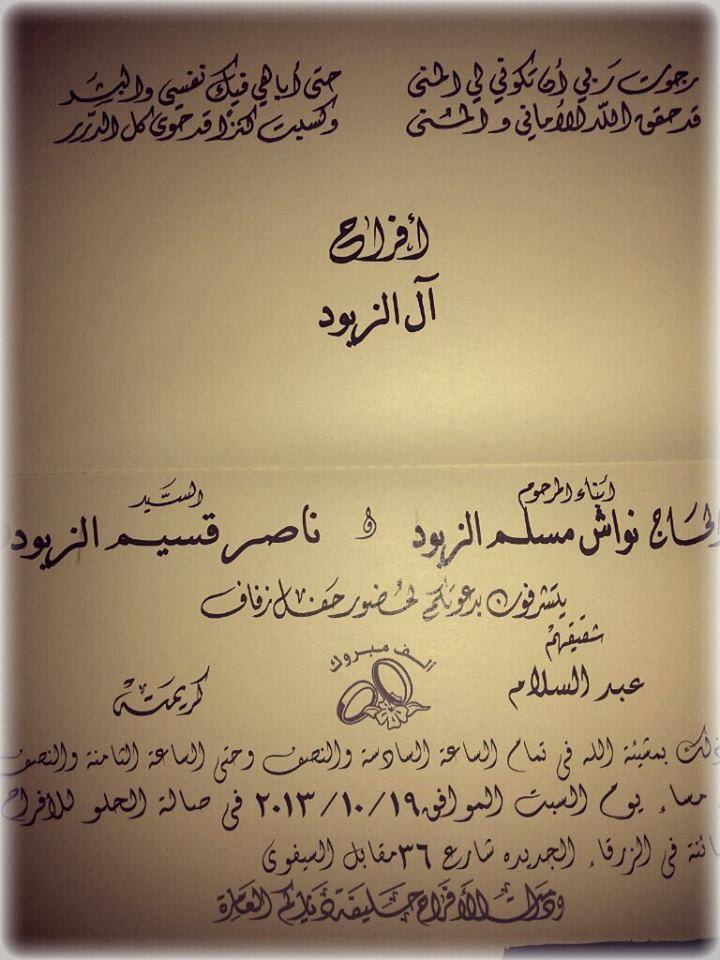 رجوت ربي أن تكوني لي المنى حتى أباهي فيك نفسي والبشر
قد حقق الله الأماني والمنى وكسبت كنزًا قد حوى كل الدرر
أفراح
آل الزيود
أبناء المرحوم السيد
الحاج نواش مسلم الزيود و ناصر قسيم الزيود
يتشرفون بدعوتكم لحضور حفل زفاف
شقيقهم
عبد السلام ألف مبروك كريمته
وذلك بمشيئة الله في تمام الساعة السادسة والنصف وحتى الساعة الثامنة والنصف
مساء يوم السبت الموافق ٢٠١٣/١٠/١٩ في صالة الحلو للأفراح
في الزرقاء الجديده شارع ٣٦ مقابل السيفوي
ودامت الأفراح حليفة دياركم العامرة